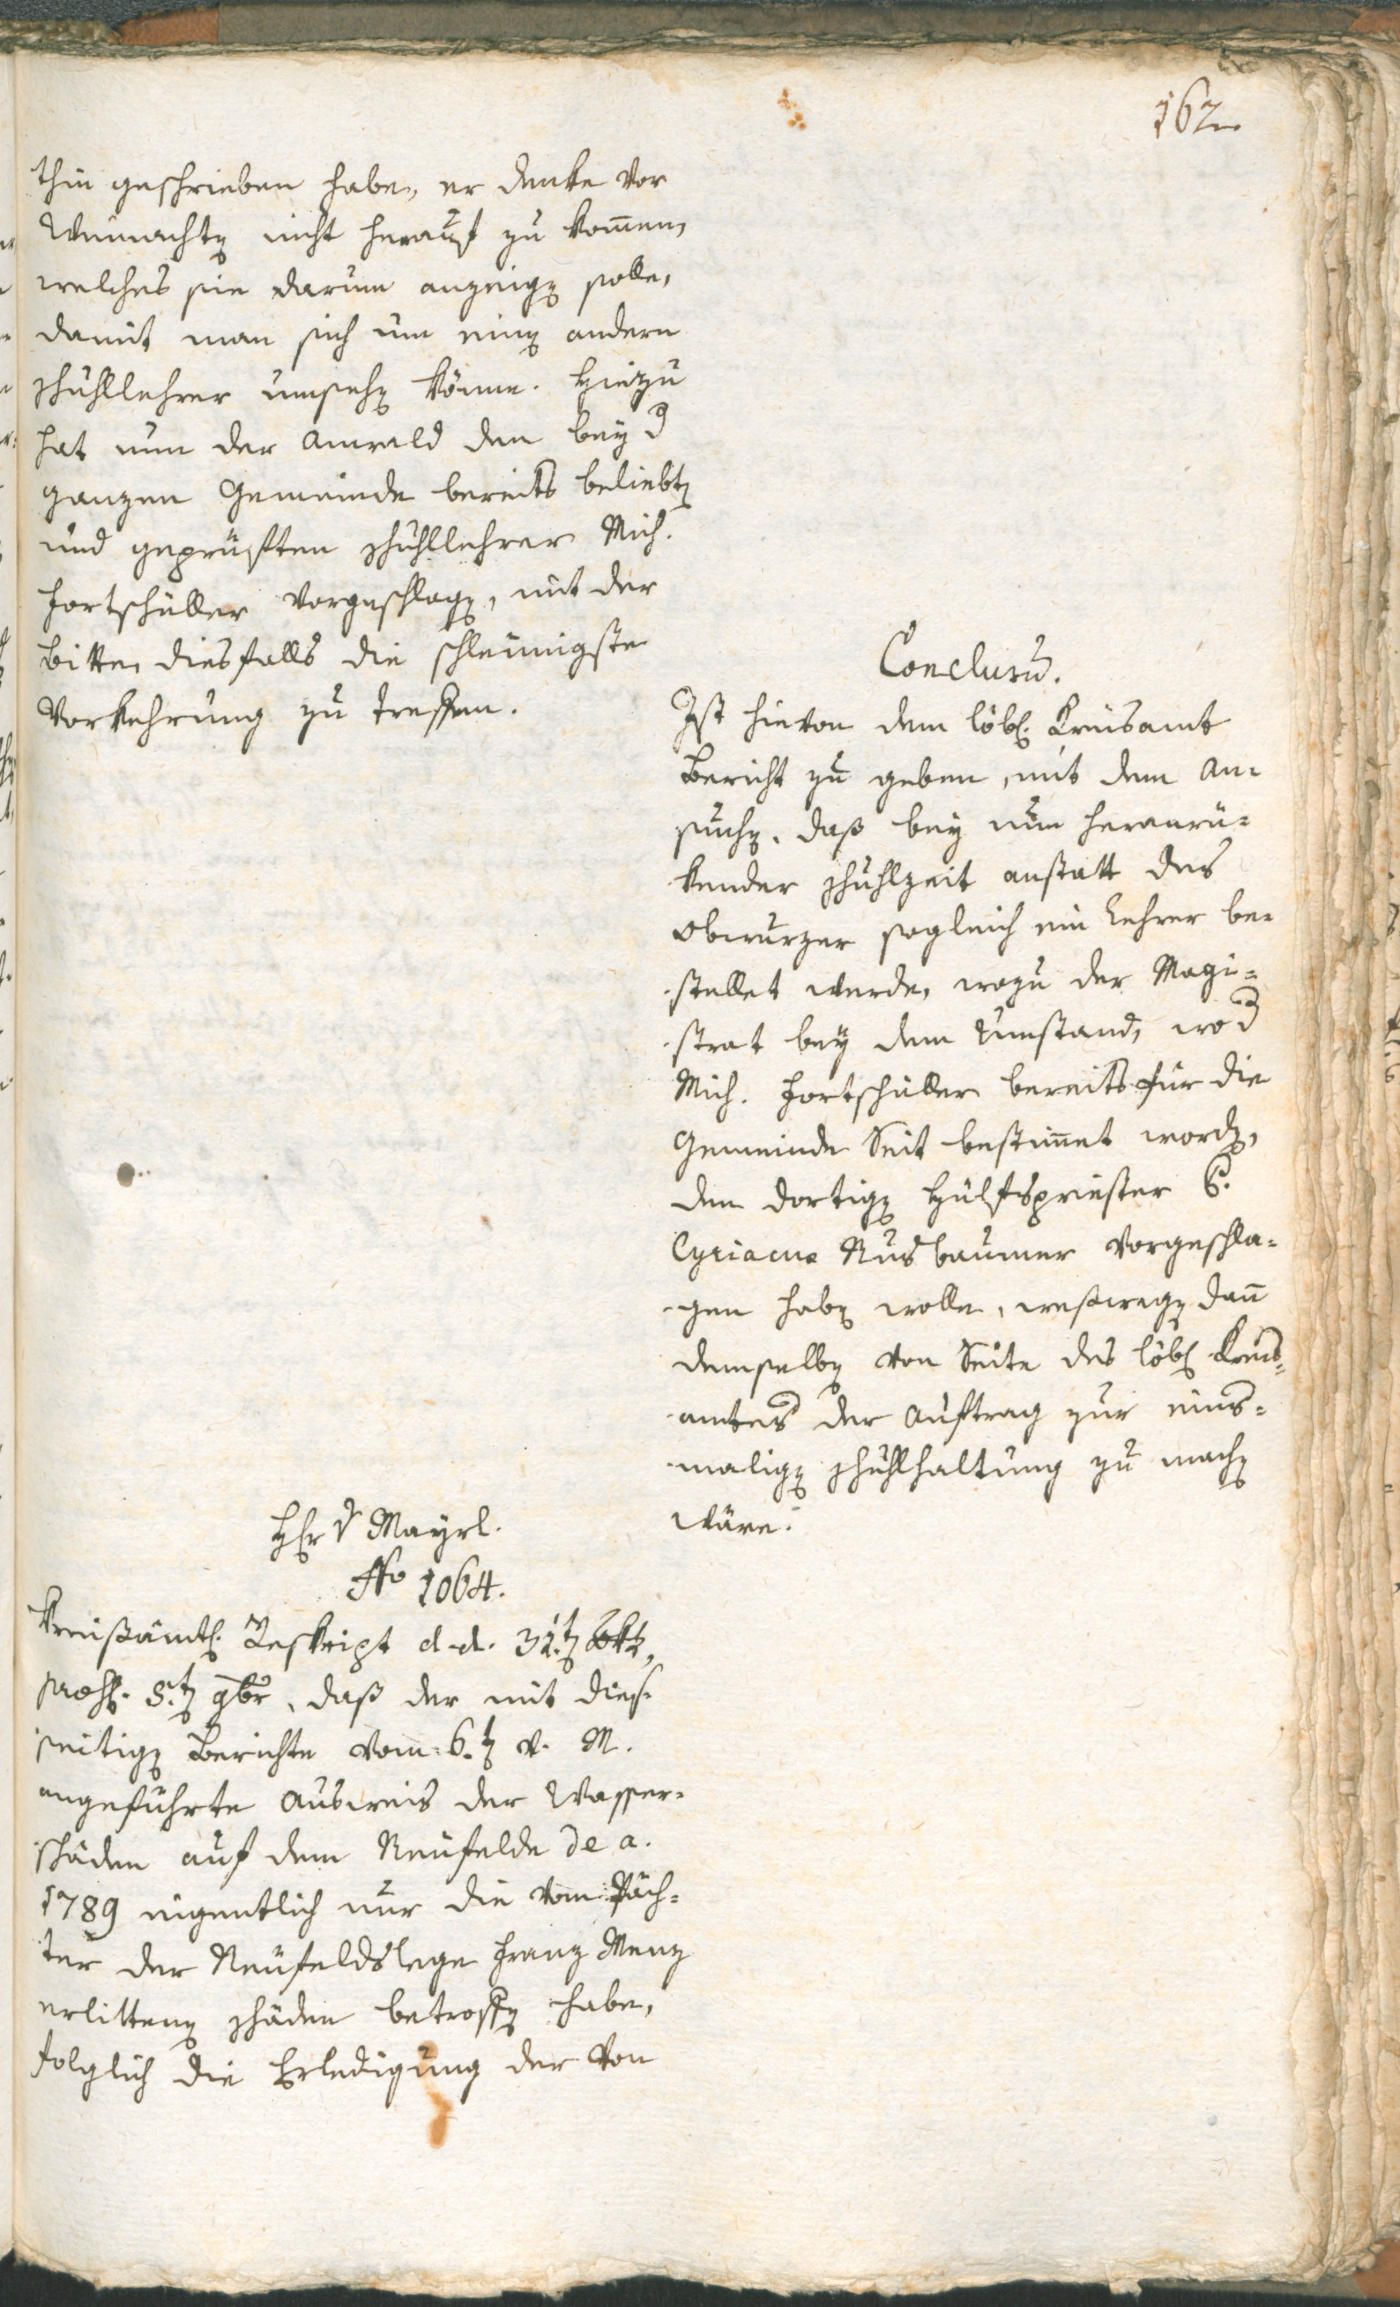 162.
thin geschrieben habe, er denke vor
Weinachten nicht herauf zu kommen,
welches sie darum anzeigen solle,
damit man sich um einen andern
Schullehrer umsehen könne. Hiezu
hat nun der Anwald den bey der
ganzen Gemeinde bereits beliebten
und geprüften Schullehrer Mich.
Fortschüller vorgeschlagen, mit der
Bitte, diesfalls die schleunigste
Vorkehrung zu treffen.
Conclusum.
Ist hievon dem löbl. Kreisamt
Bericht zu geben, mit dem An-
suchen, daß bey nun heranrü-
kender Schuhlzeit anstatt des
Obwurzer sogleich ein Lehrer be-
stellet werde, wozu der Magi-
strat bey dem Umstand, wo der
Mich. Fortschüller bereits für die
Gemeinde Seit bestimmet worden,
den dortigen Hülfspriester P.
Cyriacus Nusbaumer vorgeschla-
gen haben wolle, weßwegen dann
demselben von Seite des löbl. Kreis-
amtes der Auftrag zur eins-
maligen Schuhlhaltung zu machen
wäre.
Hr. v Mayrl.
No 1064.
Kreisämtl. Reskript d. d. 31.ten 8bt.,
praes. 8.ten 9br, daß der mit dies-
seitigen Berichte vom 6.ten v. M.
angeführte Ausweis der Wasser-
schäden auf dem Neufelde de a.
1789 eigentlich nur die vom Päch-
ter der Neufeldslege Franz Menz
erlittenen Schäden betroffen habe,
folglich die Erledigung der von